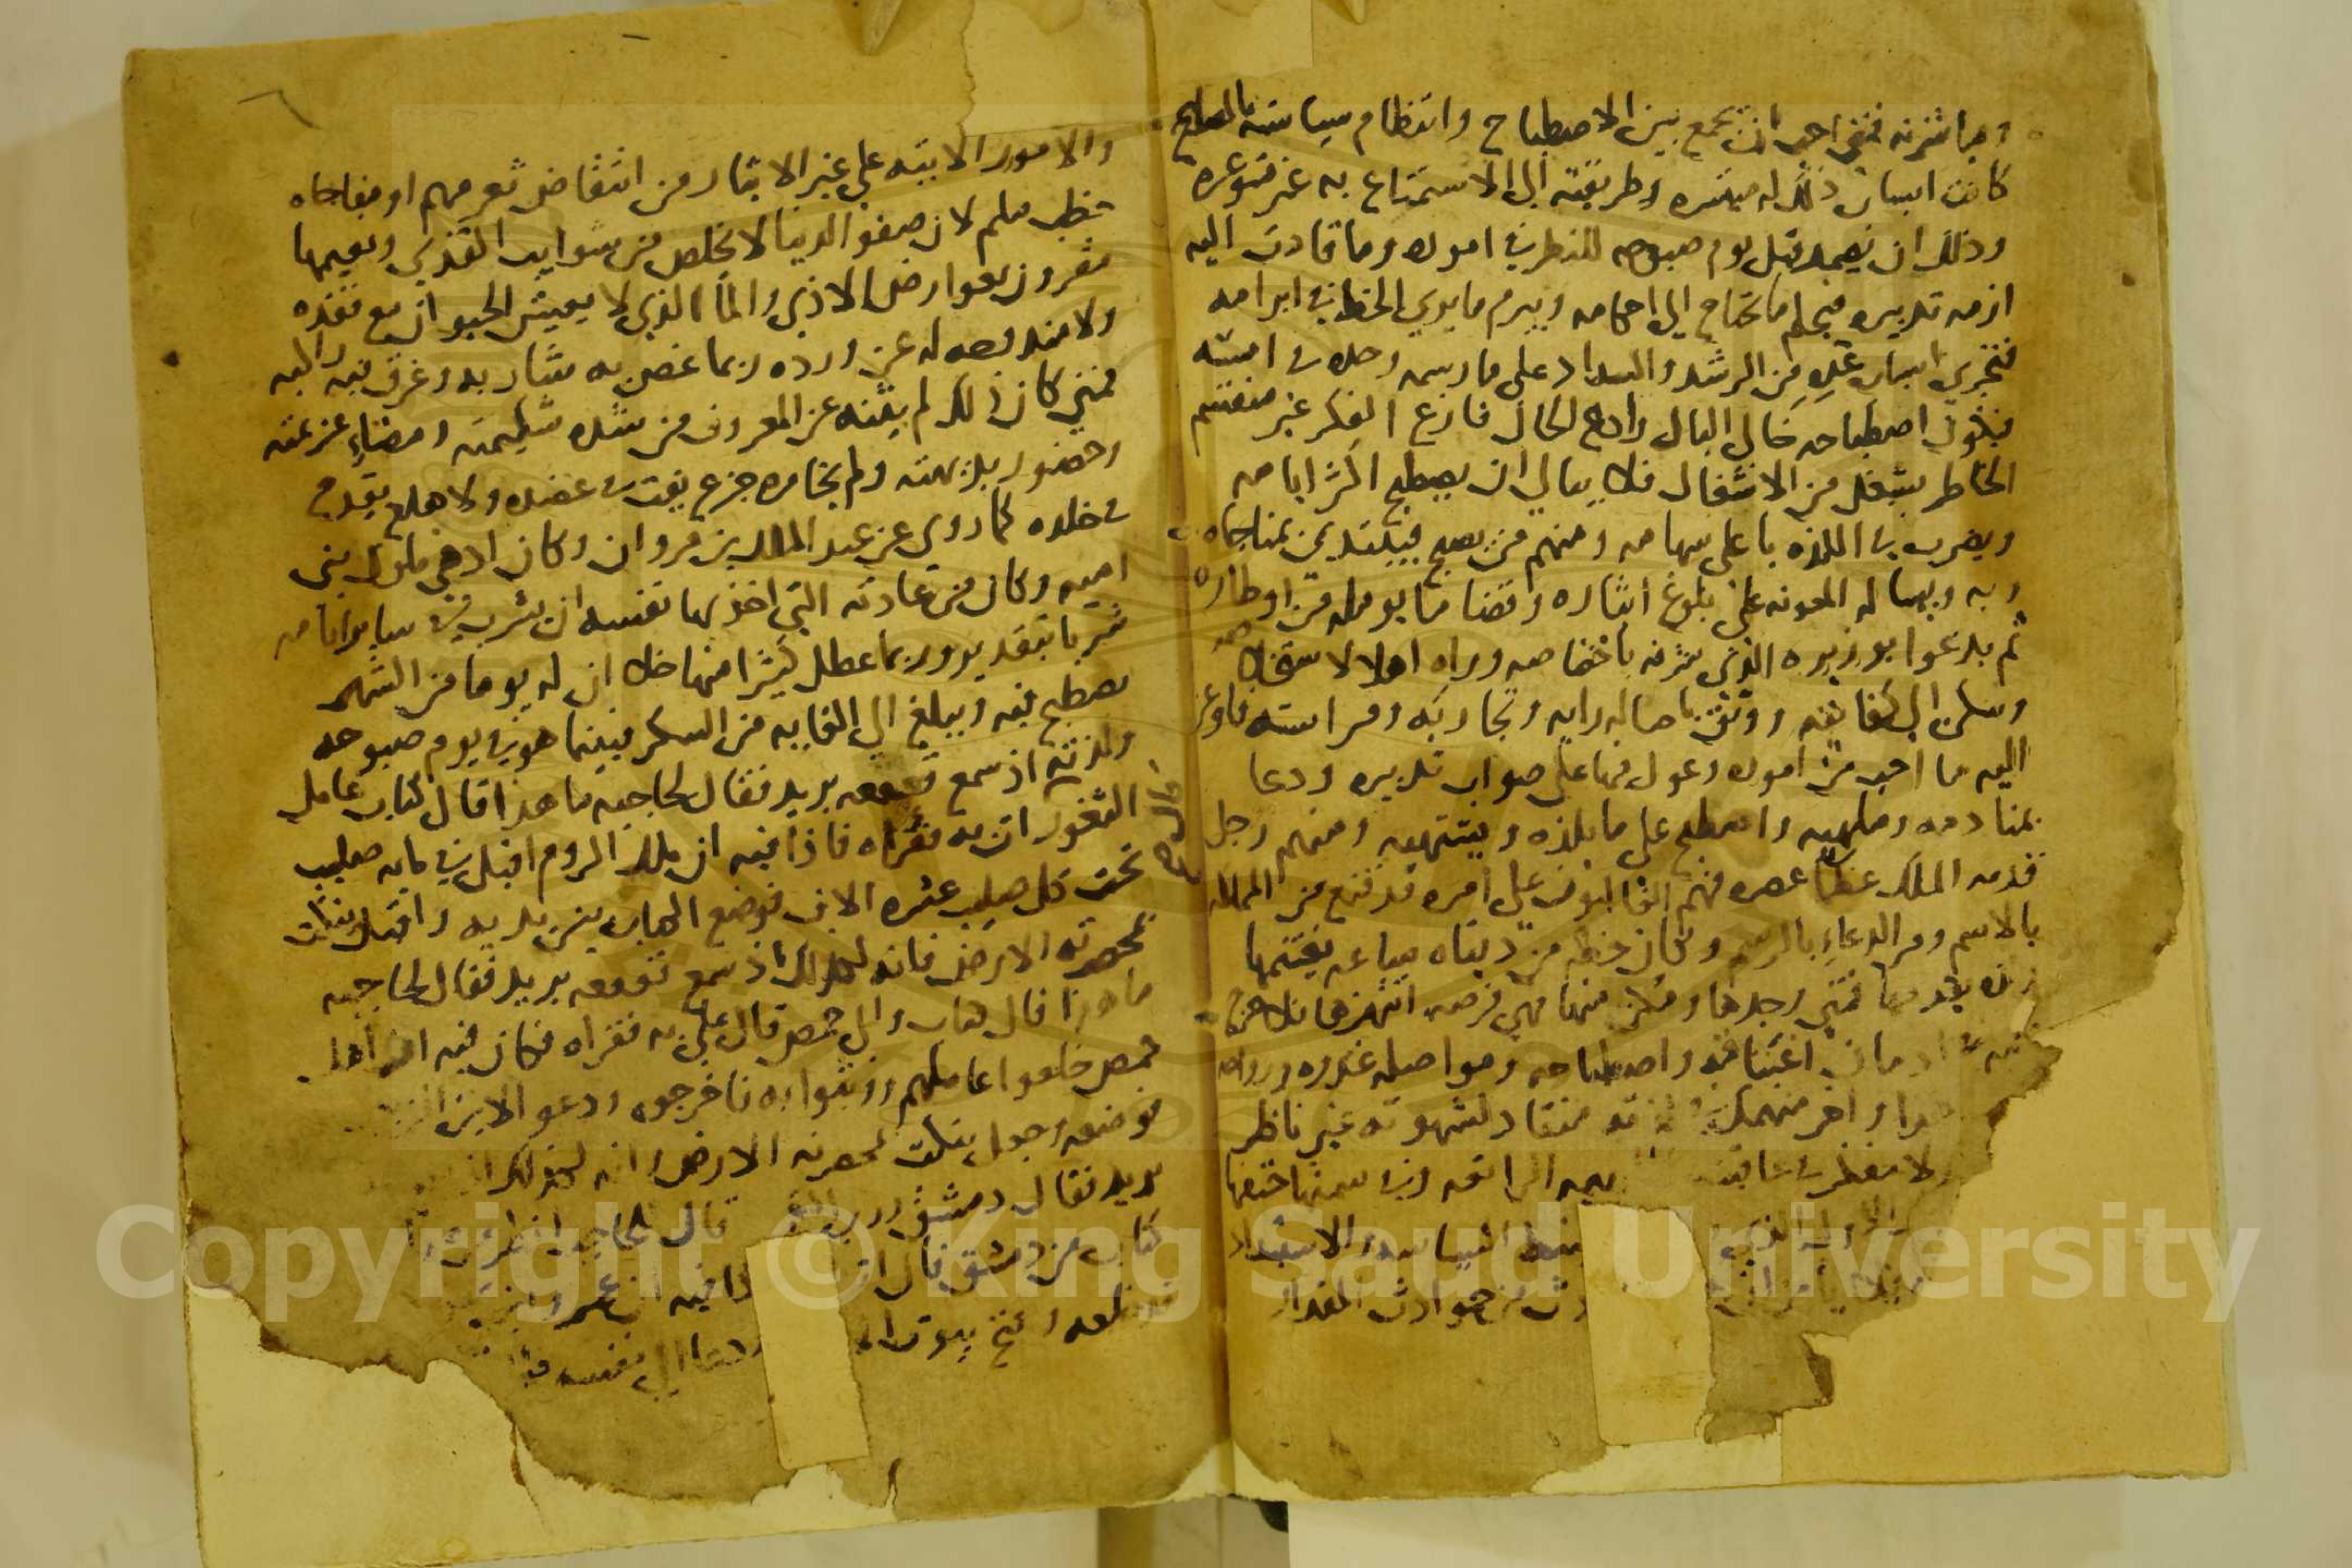 ومباشرته فمتى احب ان يجمع بين الاصطباح وانتظام سياسته بالمصالح
كانت اسباب ذلك له ميسره وطريقته الى الاستمتاع به غير متوعره
وذلك ان يعمد قبل يوم صبوحه للنظر في اموره وما قادت اليه
ازمه تدبيره فيحكم ما يحتاج الى احكامه ويبرم ما يودي الحظ في ابرامه
فتجري اسباب غده من الرشد والسداد على ما رسمه وحده في امسه
فيكون اصطباحه خالي البال وادع الحال فارغ الفكر غير منقسم
الخاطر بشغل من الاشغال فلا يبالي ان يصطبح اكثر ايامه
ويضرب في اللذه باعلى سهامه ومنهم من يصبح فيبتدي بمناجاه
ربه ويساله المعونه على بلوغ ايثاره وقضا ما يومله من اوطاره
ثم يدعوا بوزيره الذي شرفه باختصاصه وراه اهلا لاستخلاصه
وسكن الى كفايته ووثق باصاله رايه وتجاربه وفراسته فاوعز
اليه ما احب من اموره وعول فيها على صواب تدبيره ودعا
بمنادمه وملهيه واصطبح على ما يلذه ويشتهيه ومنهم رجل
قدمه الملك عظما عصره فهم الغالبون على امره قد قنع من المملكه
بالاسم ومن الدعاء بالرسم وكان حظه من دنياه ساعه يغتنمها
فمتى وجدها وتمكن منها فهي فرصه انتهزها فلا حرج
ادمان اغتباقه واصطباحه ومواصله غدوه ورواحه
واخر منهمك منقاد لشهوته غير ناظر
ولا مفكر في عاقبته
السياسه والاستبداد
من حوادث المقدار
والامور الاتيه على غير الايثار من انتقاض ثغر مهم او مفاجاه
خطب ملم لان صفو الدنيا لا يخلص من شوايب القذى ونعيمها
مقرون بعوارض الاذى والما الذي لا يعيش الحيوان مع فقده
ولا مندوحه له عن ورده ربما غص به شاربه وغرق فيه راكبه
فمتى كان ذلك لم يثنه عن المعروف من شده شكيمته ومضاء عزيمته
وحضور بديهته ولم يخامره جزع يفت في عضده ولا هلع يقدح
في خلده كما روي عن عبد الملك بن مروان وكان ادهى ملوك بني
اميه وكان من عادته التي اخذ بها نفسه ان يشرب في ساير ايامه
شربا بتقدير وربما عطل كثيرا منها خلا ان له يوما من الشهر
يصطبح فيه ويبلغ الى الغايه من السكر فبينما هو في يوم صبوحه
ولذته اذ سمع قعقعه بريد فقال لحاجبه ما هذا قال كتاب عامل
الثغور قال ات به فقراه فاذا فيه ان ملك الروم اقبل في مايه صليب
تحت كل صليب عشره الاف فوضع الكتاب بين يديه واقبل ينكت
بمخصرته الارض فانه لكذلك اذ سمع قعقعه بريد فقال لحاجبه
ما هذا قال كتاب والي حمص قال علي به فقراه فكان فيه ان اهل
حمص خلعوا عاملهم ووثبوا به فاخرجوه ودعو
فوضعه وجعل ينكت بمخصرته الارض وانه لكذلك
بريد فقال قال لحاجبه انظر
كتاب من دمشق قال
وفتح بيوت